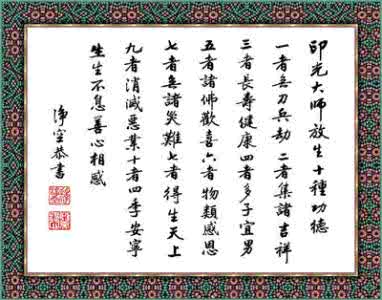 印光大師放生十種功德
一者無刀兵劫 二者集諸吉祥
三者長壽健康四者多子宜男
五者諸佛歡喜六者物類感恩
七者無諸災難七者得生天上
九者消滅惡業十者四季安寧
生生不息善心相感
淨空恭書